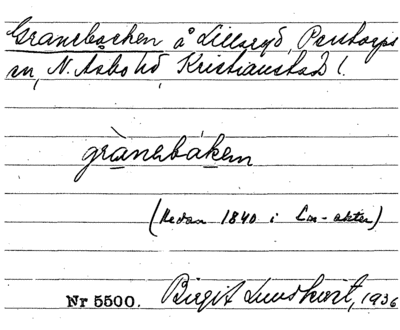 Granebacken å Lillaryd, Perstorps
sn, N. Åsbo hd, Kristianstads l.
grànebákem
(Redan 1840 i Lm-akter)
Nr 5500. Birgit Lundkvist, 1936